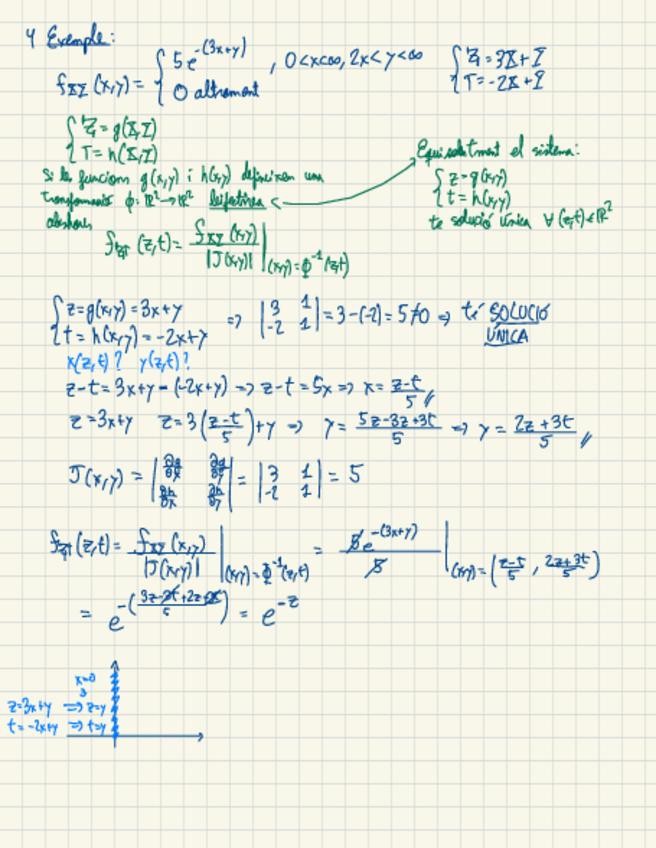 4 Exemple:
f_XY (x,y) = { 5e^-(3x+y) , 0<x<∞, 2x<y<∞
0 altrament
{ Z = 3X+Y
T = -2X+Y
{ Z = g(X,Y)
T = h(X,Y)
Si les funcions g(x,y) i h(x,y) defineixen una
transformació ϕ: ℝ²→ℝ² bijectiva
aleshores
f_ZT (z,t) = f_XY (x,y) / |J(x,y)| |(x,y)=ϕ^-1(z,t)
Equivalentment el sistema:
{ z = g(x,y)
t = h(x,y)
té solució única ∀(z,t)∈ℝ²
{ z = g(x,y) = 3x+y
t = h(x,y) = -2x+y
=> | 3 1 |
| -2 1 | = 3-(-2) = 5≠0 => té SOLUCIÓ
ÚNICA
x(z,t)? y(z,t)?
z-t = 3x+y - (-2x+y) => z-t = 5x => x = z-t / 5
z = 3x+y z = 3(z-t / 5)+y => y = 5z-3z+3t / 5 => y = 2z+3t / 5
J(x,y) = | ∂g/∂x ∂g/∂y |
| ∂h/∂x ∂h/∂y | = | 3 1 |
| -2 1 | = 5
f_ZT (z,t) = f_XY (x,y) / |J(x,y)| |(x,y)=ϕ^-1(z,t) = 5e^-(3x+y) / 5 |(x,y)=(z-t / 5, 2z+3t / 5)
= e^-(3z-3t+2z+3t / 5) = e^-z
x=0
z=3x+y => z=y
t=-2x+y => t=y